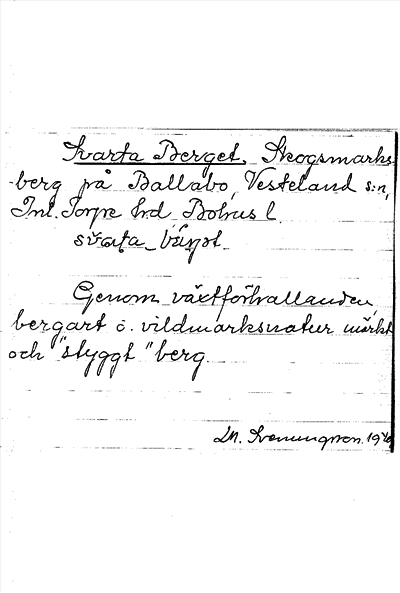 Svarta Berget, Skogsmarks-
berg på Ballabo, Västerland s:n,
Inl. Torpe hrd Bohus l.
svarta
Genom växtförhållanden,
bergart o. vildmarksnatur mörkt
och "styggt" berg.